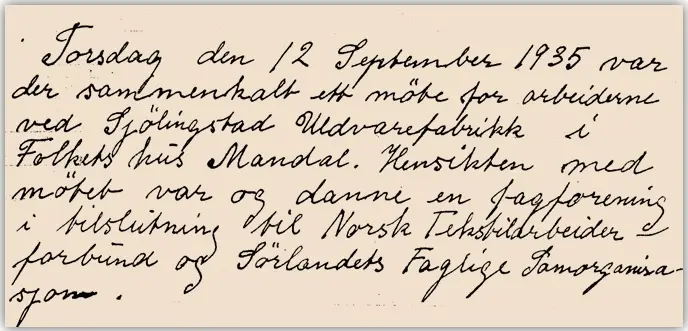 Torsdag den 12 September 1935 var
der sammenkalt ett möte for arbeiderne
ved Sjölingstad Uldvarefabrikk i
Folkets hus Mandal. Hensikten med
mötet var og danne en fagforening
i tilslutning til Norsk Tekstilarbeider-
forbund og Sörlandets Faglige Samorganisa-
sjon.